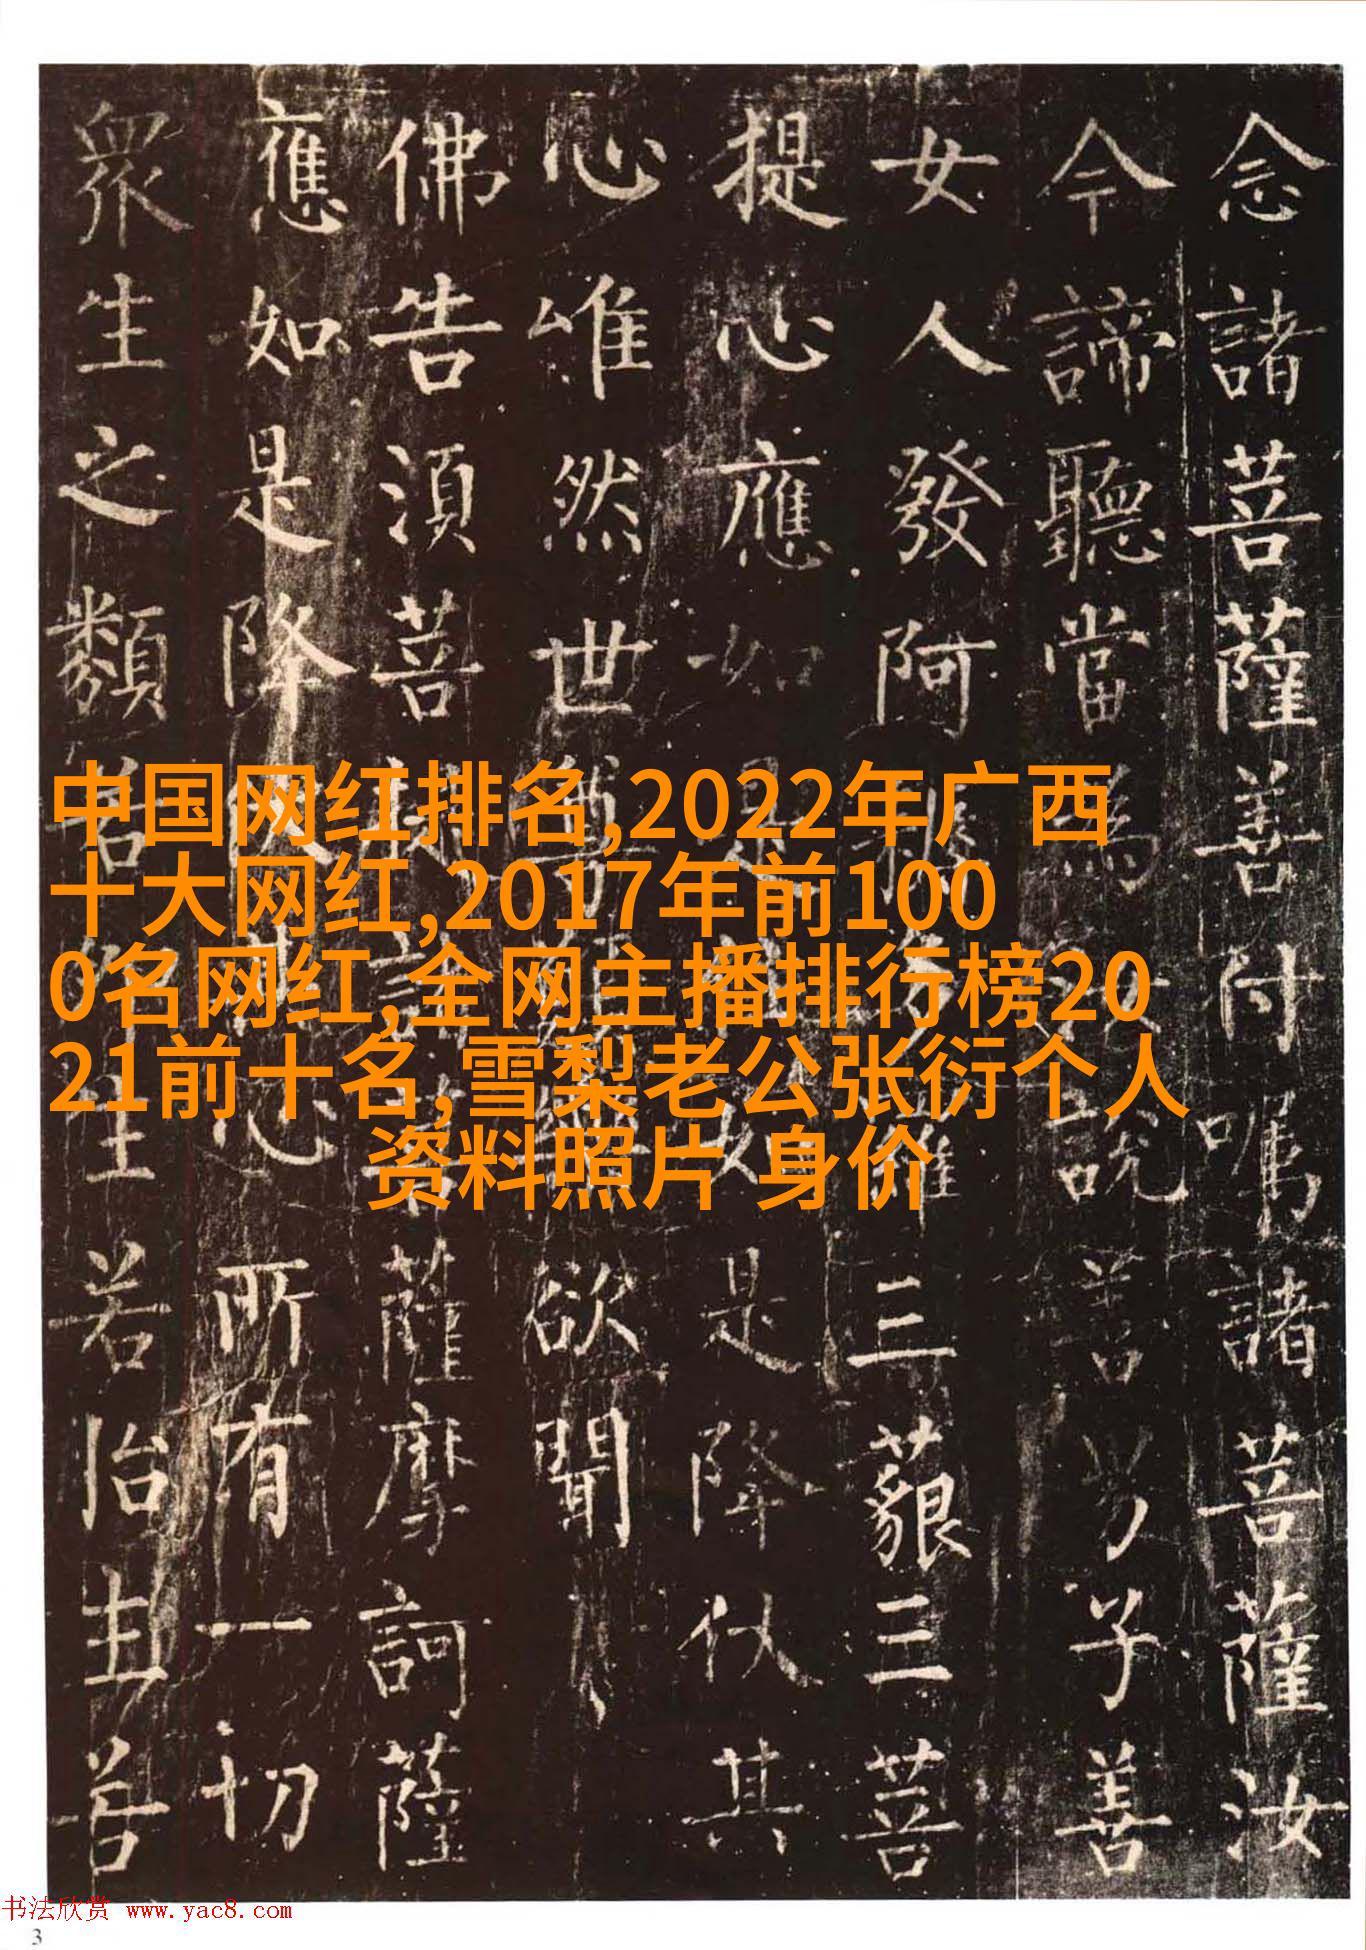 念諸菩薩善付嘱諸菩薩汝
今諦聽當為汝說善男子善
女人發阿耨多羅三藐三菩
提心應如是住如是降伏其
心唯然世尊願樂欲聞
佛告須菩提諸菩薩摩訶薩
應如是降伏其心所有一切
眾生之類若卵生若胎生若
中国网红排名,2022年广西
十大网红,2017年前100
0名网红,全网主播排行榜20
21前十名,雪梨老公张衍个人
资料照片 身价
书法欣赏 www.yac8.com
3